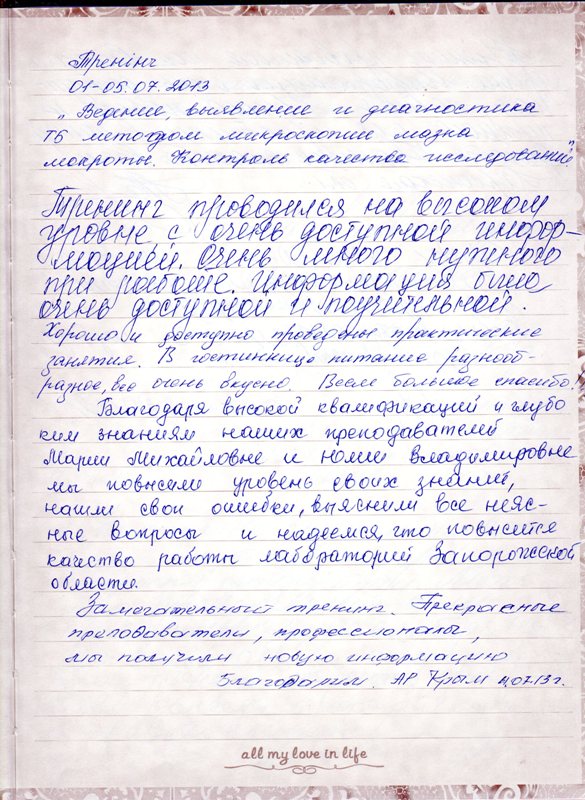 Тренінг
01-05.07.2013
„Ведение, выявление и диагностика
ТБ методом микроскопии мазка
мокроты. Контроль качества исследований"
Тренинг проводился на высоком
уровне с очень доступной инфор-
мацией. Очень много нужного
при работе. Информация была
очень доступной и поучительной.
Хорошо и доступно проведены практические
занятия. В гостиннице питание разнооб-
разное, все очень вкусно. Всем большое спасибо!
Благодаря высокой квалификаций и глубо
ким знаниям наших преподавателей
Марии Михайловне и Владимировне
мы повысили уровень своих знаний,
нашли свои ошибки, выяснили все неяс-
ные вопросы и надеемся, что повысится
качество работы лабораторий Запорожской
области.
Замечательный тренинг. Прекрасные
преподаватели, профессионалы,
мы получили новую информацию
Благодарим. АР Крым
all my love in life